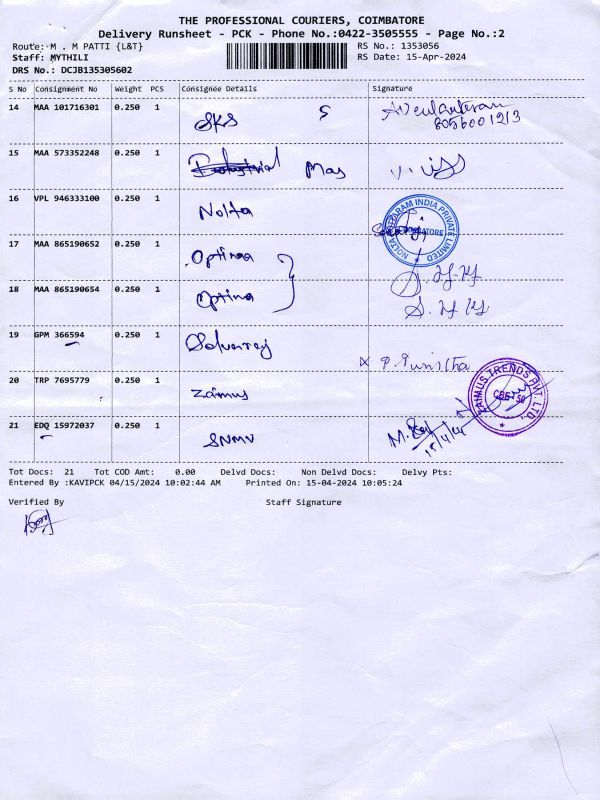 THE PROFESSIONAL COURIERS, COIMBATORE
Delivery Runsheet - PCK - Phone No.:0422-3505555 - Page No.:2
Route: M . M PATTI {L&T}
RS No.: 1353056
Staff: MYTHILI
RS Date: 15-Apr-2024
DRS No.: DCJB135305602
S No Consignment No Weight PCS Consignee Details Signature
14 MAA 101716301 0.250 1 SKS S
8056001213
15 MAA 573352248 0.250 1 Mas
16 VPL 946333100 0.250 1 Nolta
17 MAA 865190652 0.250 1 Optinaa
18 MAA 865190654 0.250 1 Optina
19 GPM 366594 0.250 1
P. Punitha
20 TRP 7695779 0.250 1 Zaimus
ZAIMUS TRENDS PVT. LTD.
21 EDQ 15972037 0.250 1 SNMV
15/4/24
Tot Docs: 21 Tot COD Amt: 0.00 Delvd Docs: Non Delvd Docs: Delvy Pts:
Entered By :KAVIPCK 04/15/2024 10:02:44 AM Printed On: 15-04-2024 10:05:24
Verified By Staff Signature